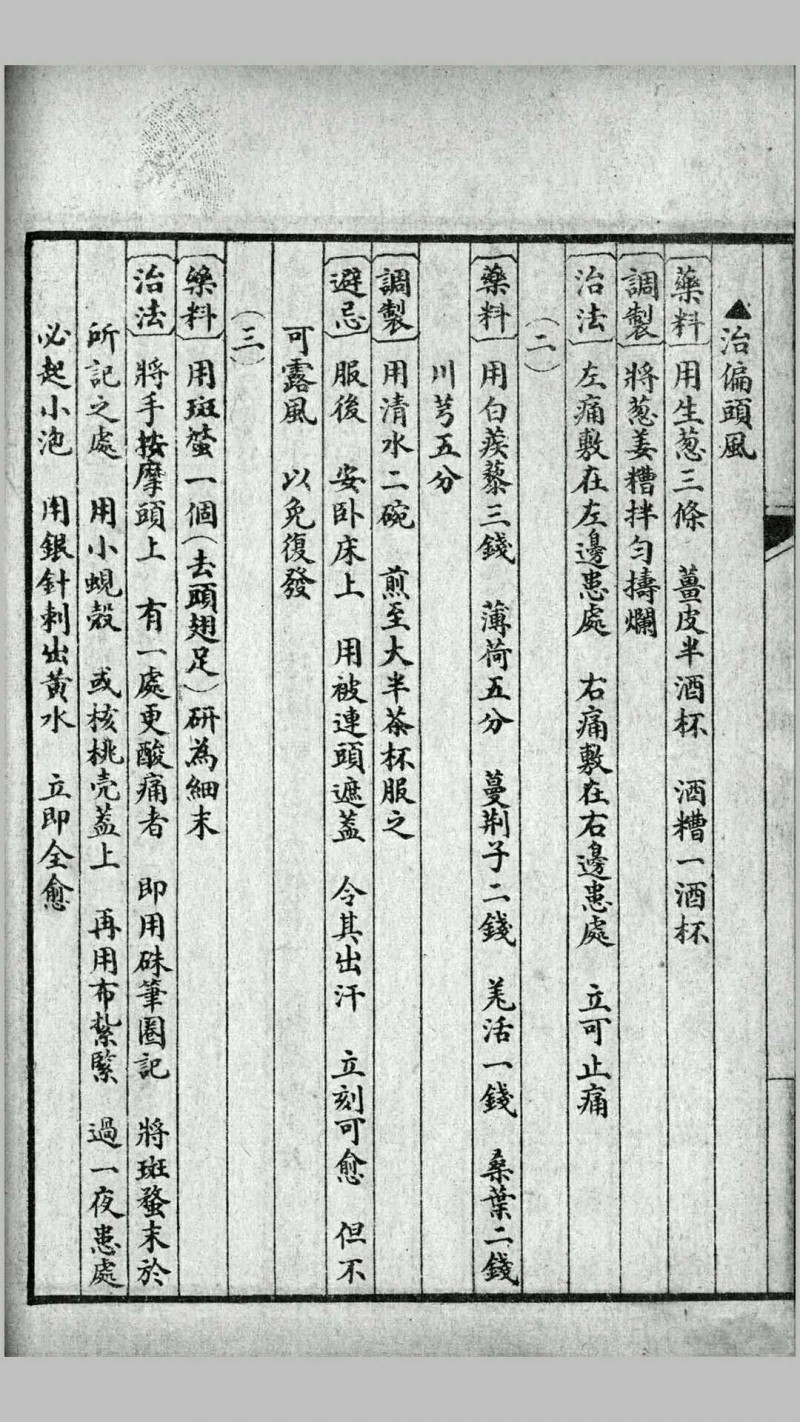 ▲治偏頭風
藥料 用生葱三條 薑皮半酒杯 酒糟一酒杯
調製 將葱姜糟拌匀擣爛
治法 左痛敷在左邊患處 右痛敷在右邊患處 立可止痛
（二）
藥料 用白蒺藜三錢 薄荷五分 蔓荆子二錢 羌活一錢 桑葉二錢
川芎五分
調製 用清水二碗 煎至大半茶杯服之
避忌 服後 安卧床上 用被連頭遮蓋 令其出汗 立刻可愈 但不
可露風 以免復發
（三）
藥料 用斑蝥一個（去頭翅足）研為細末
治法 將手按摩頭上 有一處更酸痛者 即用硃筆圈記 將斑蝥末於
所記之處 用小蜆殼 或核桃壳蓋上 再用布紮緊 過一夜患處
必起小泡 用銀針刺出黄水 立即全愈